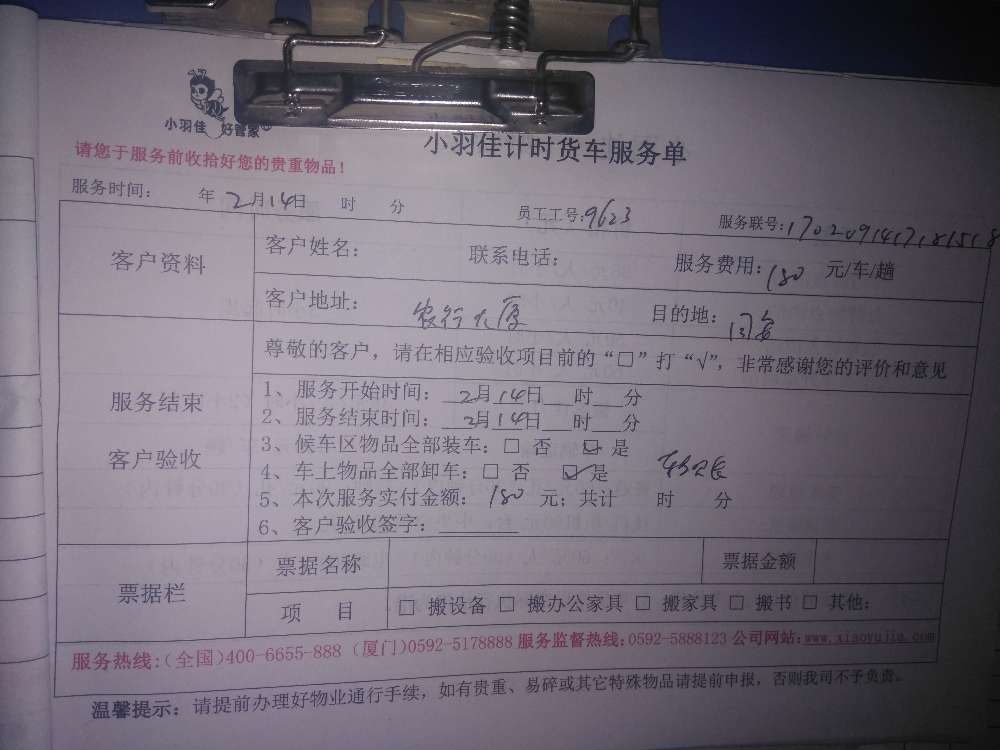 小羽佳 好管家
小羽佳计时货车服务单
请您于服务前收拾好您的贵重物品！
服务时间： 年 2月14日 时 分 员工工号:9623 服务联号:
客户资料 客户姓名： 联系电话： 服务费用：180 元/车/趟
客户地址： 农行大厦 目的地：同安
尊敬的客户，请在相应验收项目前的“□”打“√”，非常感谢您的评价和意见
服务结束
客户验收
1、服务开始时间：2月14日___时___分
2、服务结束时间：2月14日___时___分
3、候车区物品全部装车：□ 否 ☑ 是
4、车上物品全部卸车：□ 否 ☑ 是
5、本次服务实付金额： 180 元；共计 时 分
6、客户验收签字：________
票据栏 票据名称 票据金额
项 目 □ 搬设备 □ 搬办公家具 □ 搬家具 □ 搬书 □ 其他：
服务热线：（全国）400-6655-888 （厦门）0592-5178888 服务监督热线：0592-5888123 公司网站：www.xiaoyujia.com
温馨提示：请提前办理好物业通行手续，如有贵重、易碎或其它特殊物品请提前申报，否则我司不予负责。